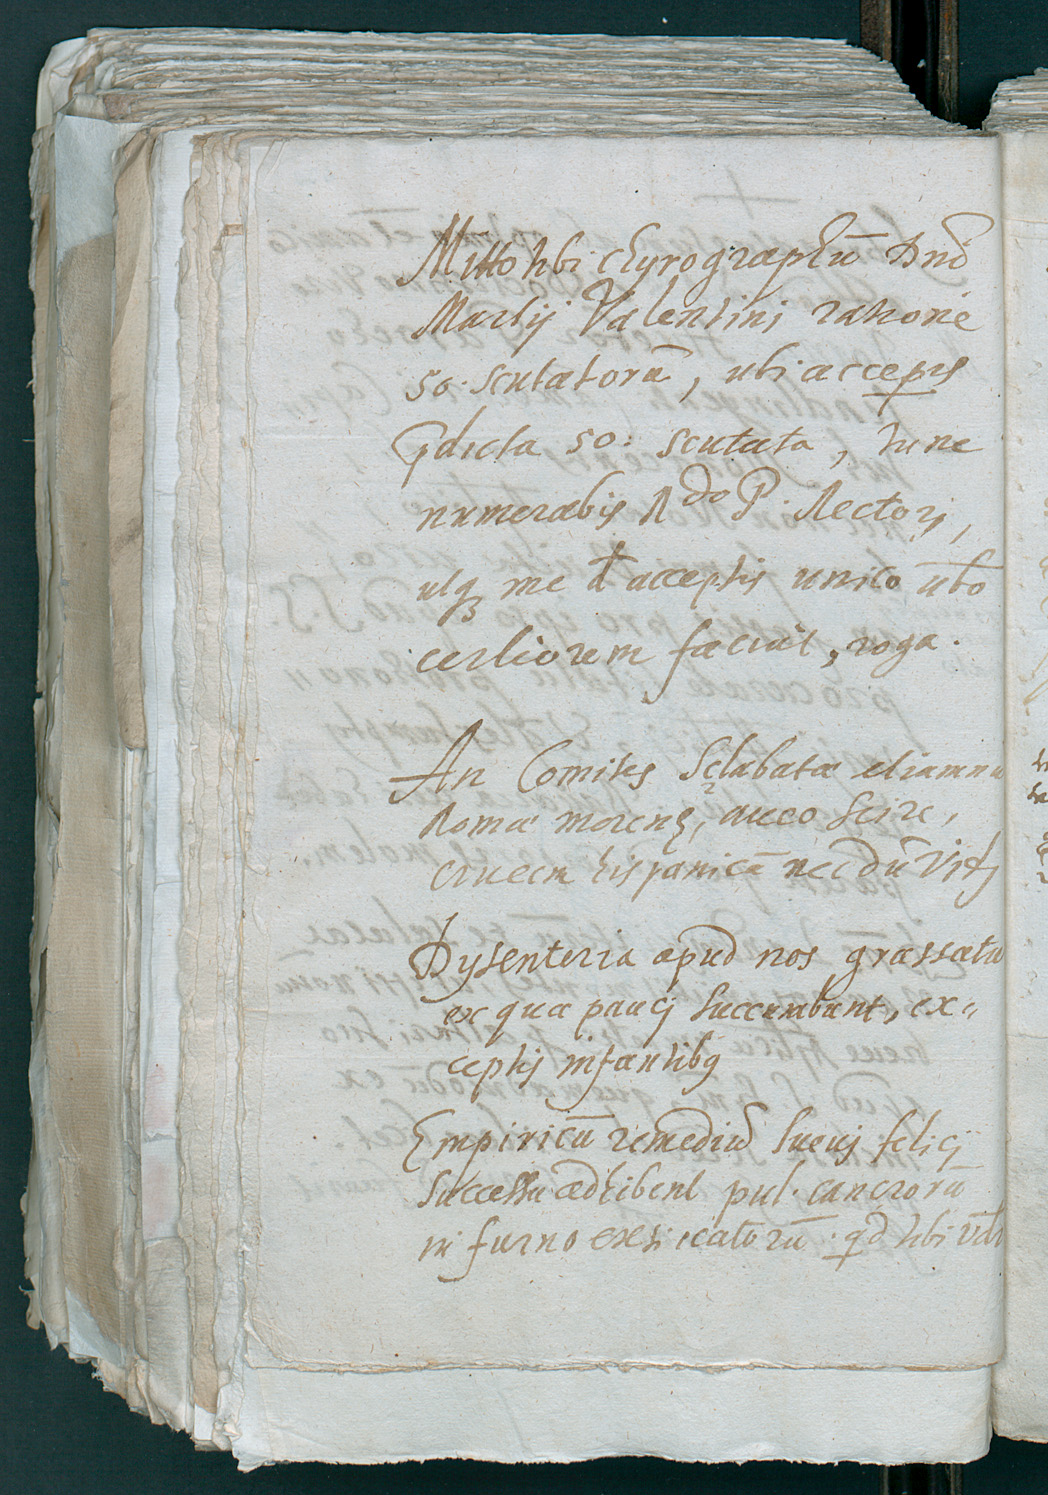 Mitto tibi chyrographū Dn̄i
Martij Valentini ratione
50. scutatorū, ubi accepis
p̄dicta 50: scutata, tunc
numerabis Rdo P. Rectorj,
utq3 me d̄ acceptis unico v̄bo
certiorem faciat, roga.
An Comites Sclabatæ etiamnū
Romæ morent, aueo scire,
crucem hispanicā necdū vidj
Dysenteria apud nos grassatu
ex qua paucj succumbunt, ex=
ceptis infantibus
Empiricū remediū Sueuj felicj
Successu adhibent pul. cancrorū
in furno exsiccatorū. qd tibi